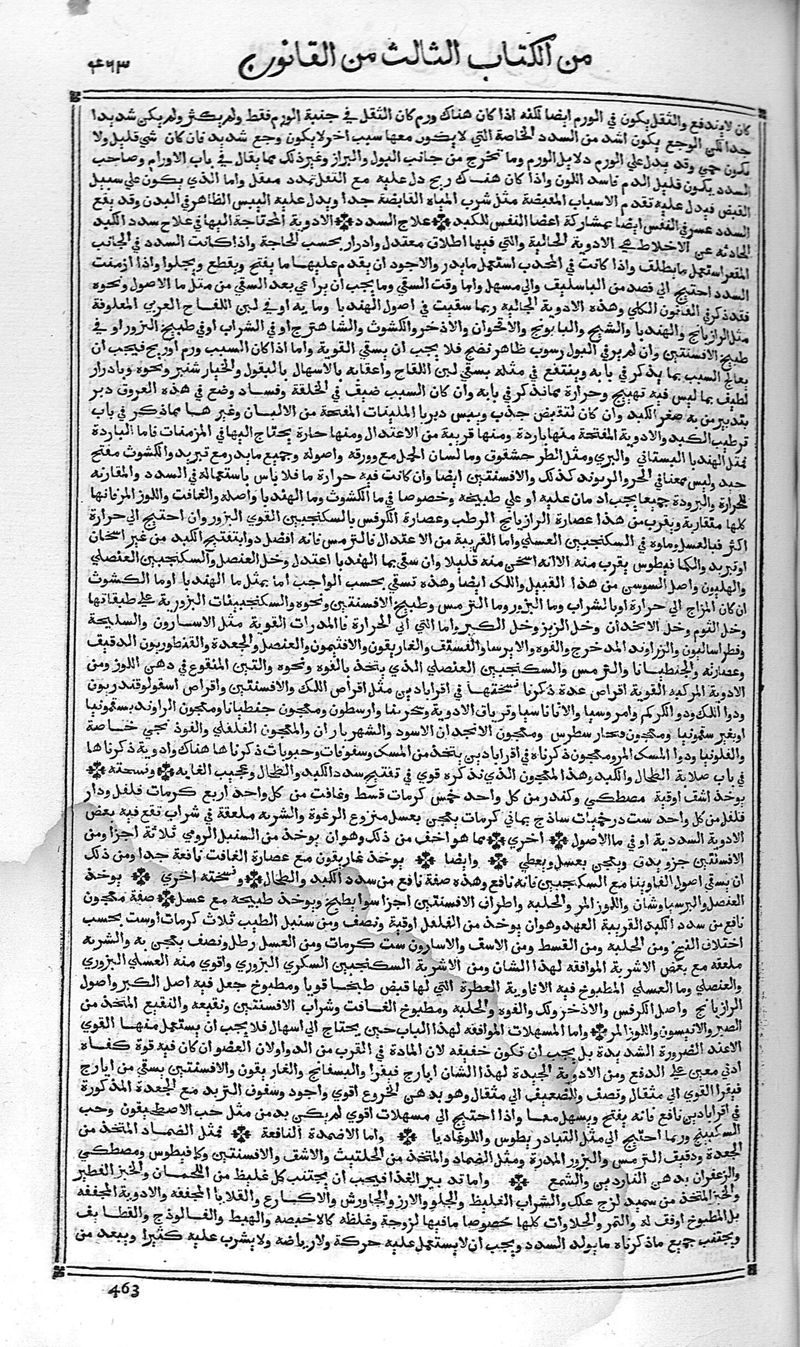 من الكتاب الثالث من القانون
٤٦٣
كان لا يندفع والثقل يكون في الورم ايضا لكنه اذا كان هناك ورم كان الثقل في جنبة الورم فقط ولم يكثر ولم يكن شديدا
جدا لكن الوجع يكون اشد من السدد الخاصة التي لا يكون معها سبب اخر لا يكون وجع شديد فان كان شي قليل ولا
تكون حمي وقد يدل علي الورم دلايل الورم وما تخرج من جانب البول والبراز وغير ذلك مما يقال في باب الاورام وصاحب
السدد يكون قليل الدم فاسد اللون واذا كان هناك ريح دل عليه مع الثقل تمدد مثقل واما الذي يكون علي سبيل
القبض فيدل عليه تقدم الاسباب المقبضة مثل شرب المياه القابضة جدا ويدل عليه اليبس الظاهر في البدن وقد يقع
السدد عسر في النفس ايضا بمشاركة اعضا النفس للكبد علاج السدد الادوية المحتاجة اليها في علاج سدد الكبد
الحادثة عن الاخلاط هي الادوية الجالية والتي فيها اطلاق معتدل وادرار بحسب الحاجة واذا كانت السدد في الجانب
المقعر استعمل ما يطلق واذا كانت في المحدب استعمل ما يدر والاجود ان يقدم عليهما ما يفتح ويقطع ويجلوا واذا ازمنت
السدد احتيج الي فصد من الباسليق والي مسهل واما وقت السقي وما يجب ان يراعي بعد السقي من مثل ما الاصول ونحوه
فقد ذكر في القانون الكلي وهذه الادوية الجاليه ربما سقيت في اصول الهندبا وما يه او في لبن اللقاح العربي المعلوفة
مثل الرازيانج والهندبا والشيح والبابونج والاقحوان والاذخر والكشوث والشاهترج او في الشراب او في طبيخ البزور او في
طبيخ الافسنتين وان لم ير في البول رسوب ظاهر نضج فلا يجب ان يسقي القوية واما اذا كان السبب ورم او ريح فيجب ان
يعالج السبب بما يذكر في بابه وينتفع في مثله بسقي لبن اللقاح واعقابه بالاسهال بالبقول والخيار شنبر ونحوه وبادرار
لطيف بما ليس فيه تهييج وحرارة مما نذكر في بابه وان كان السبب ضيق في الخلقة وفساد وضع في هذه العروق دبر
بتدبير من به صغر الكبد وان كان لتقبض جذب ويبس دبر بالملينات المفتحة من الالبان وغيرها مما ذكر في باب
ترطيب الكبد والادوية المفتحة منها باردة ومنها قريبة من الاعتدال ومنها حارة يحتاج اليها في المزمنات فاما الباردة
فمثل الهندبا البستاني والبري ومثل الطرحشقوق وما لسان الحمل مع وورقه واصوله وجميع ما يدر مع تبريد والكشوث مفتح
جيد وليس بمعنا في الحر والريوند كذلك والافسنتين ايضا وان كانت فيه حرارة ما فلا باس باستعماله في السدد والمقارنه
للحرارة والبرودة جميعا يجب ادمان عليه او علي طبيخه وخصوصا في ما الكشوث وما الهندبا واصله والغافت واللوز المر فانها
كلها متقاربة ويقرب من هذا عصارة الرازيانج الرطب وعصارة الكرفس بالسكنجبين القوي البزور وان احتيج الي حرارة
اكثر فبالعسل وماوه في السكنجبين العسلي واما القريبة من الاعتدال فالترمس فانه افضل دوا يفتتح الكبد من غير اسخان
او تبريد والكمافيطوس يقرب منه الا انه اسخن منه قليلا وان سقي بما الهندبا اعتدل وخل العنصل والسكنجبين العنصلي
والهليون واصل السوسن من هذا القبيل واللك ايضا وهذه تسقي بحسب الواجب اما بمثل ما الهندبا او ما الكشوث
ان كان المزاج الي حرارة او بالشراب وما البزور وما الترمس وطبيخ الافسنتين ونحوه والسكنجبينات البزورية علي طبقاتها
وخل الثوم وخل الانجدان وخل الزيز وخل الكبر واما التي الي الحرارة فالمدرات القوية مثل الاسارون والسليخة
وفطراساليون والزراوند المدحرج والفوه والايرسا والفستق والغاريقون والافتيمون والعنصل والجعدة والقنطوريون الدقيق
وعصارته والجنطيانا والترمس والسكنجبين العنصلي الذي يتخذ بالفوه ونحوه والتين المنقوع في دهن اللوز ومن
الادوية المركبه القوية اقراص عدة ذكرنا نسختها في اقرابادين مثل اقراص اللك والافسنتين واقراص اسقولوقندريون
ودوا اللك ودوا الكركم وامروسيا والاثاناسيا وترياق الادوية وسجرنيا وارسطون ومعجون جنطيانا ومعجون الراوند بسقمونيا
او بغير سقمونيا ومعجون سطرس ومعجون الانجدان الاسود والشهرياران والمعجون الفلفلي والفوذنجي خاصة
والفلونيا ودوا المسك المر ومعجون ذكرناه في اقرابادين يتخذ من المسك وسفوفات وحبوبات ذكرناها هناك وادوية ذكرناها
في باب صلابة الطحال والكبد وهذا المعجون الذي نذكره قوي في تفتيح سدد الكبد والطحال وعجيب الغايه ونسخته
يوخذ اشق اوقية مصطكي وكندر من كل واحد خمس كرمات قسط وغافت من كل واحد اربع كرمات فلفل ودار
فلفل من كل واحد ست درخميات ساذج ثماني كرمات يعجن بعسل منزوع الرغوة والشربه ملعقة في شراب نقع فيه بعض
الادوية السددية او في ما الاصول اخري مما هو اخف من ذلك وهو ان يوخذ من السنبل الرومي ثلاثة اجزا ومن
الافسنتين جزو يدق ويعجن بعسل ويعطي وايضا يوخذ غاريقون مع عصارة الغافت نافعة جدا ومن ذلك
ان يسقي اصول الفاوينا مع السكنجبين فانه نافع وهذه صفة نافع من سدد الكبد والطحال ونسخته اخري يوخذ
العنصل والبرسياوشان واللوز المر والحلبه واطراف الافسنتين اجزا سوا يطبخ ويوخذ طبيخه مع عسل صفة معجون
نافع من سدد الكبد القريبة العهد وهو ان يوخذ من الفلفل اوقية ونصف ومن سنبل الطيب ثلاث كرمات او ست بحسب
اختلاف النسخ ومن الحلبه ومن القسط ومن الاسف والاسارون ست كرمات ومن العسل رطل ونصف يعجن به والشربه
ملعقه مع بعض الاشربة الموافقه لهذا الشان ومن الاشربة السكنجبين السكري البزوري واقوي منه العسلي البزوري
والعنصلي وما العسلي المطبوخ فيه الافاوية العطرة التي لها قبض طبخا قويا ومطبوخ جعل فيه اصل الكبر واصول
الرازيانج واصل الكرفس والاذخر ولك والفوه والحلبه ومطبوخ الغافت وشراب الافسنتين ونقيعه والنقيع المتخذ من
الصبر والانيسون واللوز المر واما المسهلات الموافقه لهذا الباب حين يحتاج الي اسهال فلا يجب ان يستعمل منها القوي
الا عند الضرورة الشديدة بل يجب ان تكون خفيفه لان المادة في القرب من الدوا ولان العضو ان كان فيه قوة كفاه
ادني معين علي الدفع ومن الادوية الجيدة لهذا الشان ايارج فيقرا والبسفانج والغاريقون والافسنتين يسقي من ايارج
فيقرا القوي الي مثقال ونصف والضعيف الي مثقال وهو بدهن الخروع اقوي واجود وسفوف التربد مع الجعدة المذكورة
في اقرابادين نافع فانه يفتح ويسهل معا واذا احتيج الي مسهلات اقوي لم يكن بد من مثل حب الاصطمحيقون وحب
السكبينج وربما احتيج الي مثل التيادريطوس واللوغاديا واما الاضمدة النافعة فمثل الضماد المتخذ من
الجعدة ودقيق الترمس والبزور المدرة ومثل الضماد والمتخذ من الحلتيث والاشق والافسنتين وكمافيطوس ومصطكي
والزعفران بدهن الناردين والشمع واما تدبير الغذا فيجب ان يجتنب كل غليظ من اللحمان والخبز الفطير
والخبز المتخذ من سميد لزج علك والشراب الغليظ والحلو والارز والجاورش والاكارع والقلايا المجففه والادوية المجففه
بل المطبوخ اوفق له والتمر والحلاوات كلها خصوصا ما فيها لزوجة وغلظه كالاخبصه والبهط والفالوذج والقطايف
ويجتنب جميع ما ذكرناه مما يولد السدد ويجب ان لا يستعمل عليه حركة ولا رياضه ولا يشرب عليه كثيرا ويبعد من
463